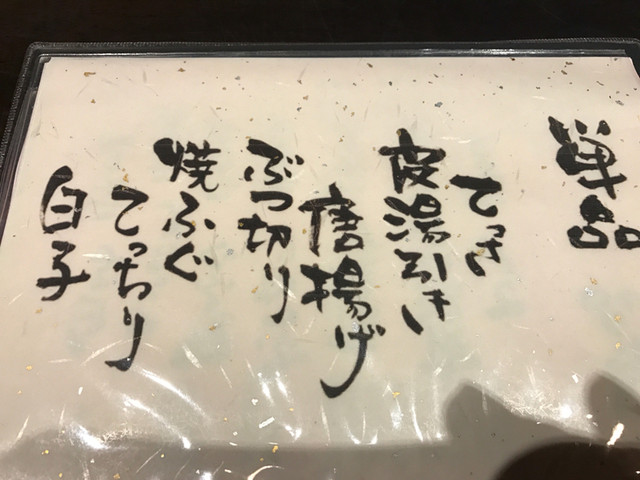 単品
てっさ
皮湯引き
唐揚げ
ぶつ切り
焼ふぐ
てっちり
白子